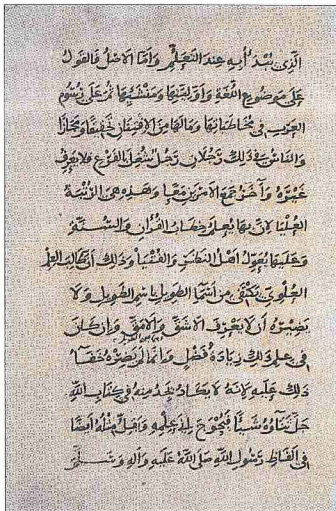 الذي يُبْدَأُ به عند التعلّمِ وأمّا الأصلُ فالقولُ
على موضوع اللغة وأوّليتها ومنشئها ثم على رسوم
العرب في مخاطباتها وما لها من الافتنان تحقيقا ومجازا
والناس في ذلك رجلان رجل شُغِل بالفرع فلا يعرف
غيره وآخر جمع الأمرين معا وهذه هي الرتبة
العليا لأن بها يعلم خطاب القرآن والسنّة
وعليها يعوّل أهل النظر والفتيا وذلك أن طالب العلم
العلوي يكتفي من أسما الطويل باسم الطويل ولا
يضيره أن لا يعرف الأشق والأمق وإن كان
في علم ذلك زيادة فضل وإنما لم يضره خفاء
ذلك عليه لأنه لا يكاد يجد منه في كتاب الله
جل ثناؤه شيئا فيحوج إلى علمه ويقل مثله أيضا
في ألفاظ رسول الله صلى الله عليه وآله وسلم